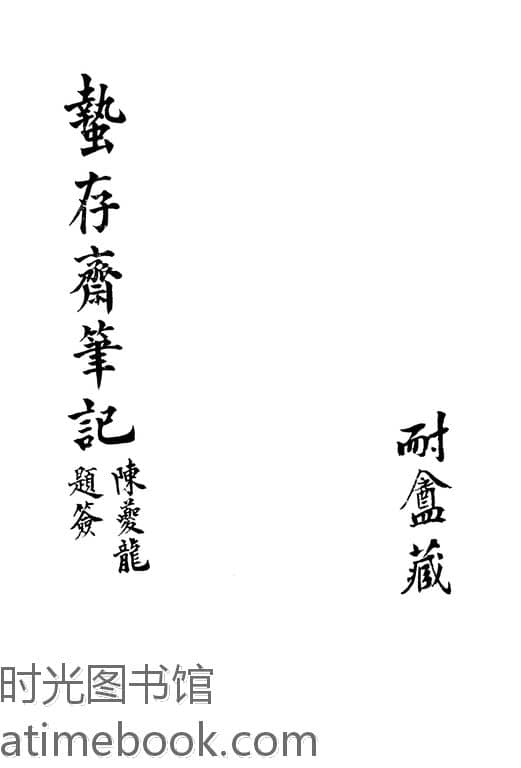 耐盦藏
蟄存齋筆記
陳夔龍
題簽
时光图书馆
atimebook.com